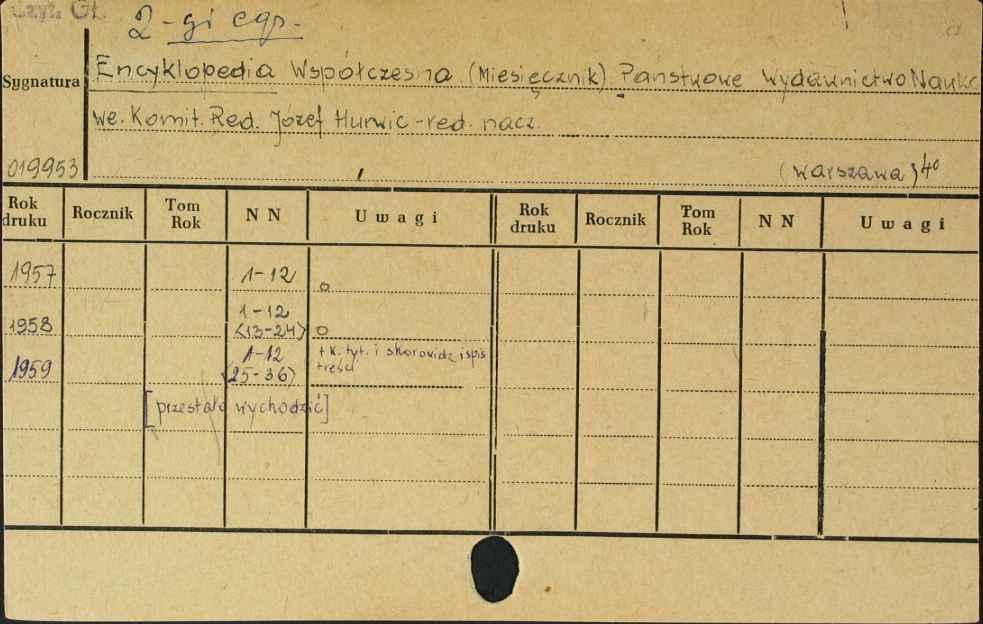 Czyt. Gł.
2-gi egz.
Sygnatura
Encyklopedia Współczesna (Miesięcznik) Państwowe Wydawnictwo Nauko
we. Komit. Red. Józef Hurwic - red. nacz.
019953
(Warszawa) 4°
Rok druku Rocznik Tom Rok NN Uwagi Rok druku Rocznik Tom Rok NN Uwagi
1957 1-12 o
1958 1-12 (13-24) o
1959 1-12 (25-36) + k. tyt. i skorowidz i spis treści
[przestało wychodzić]